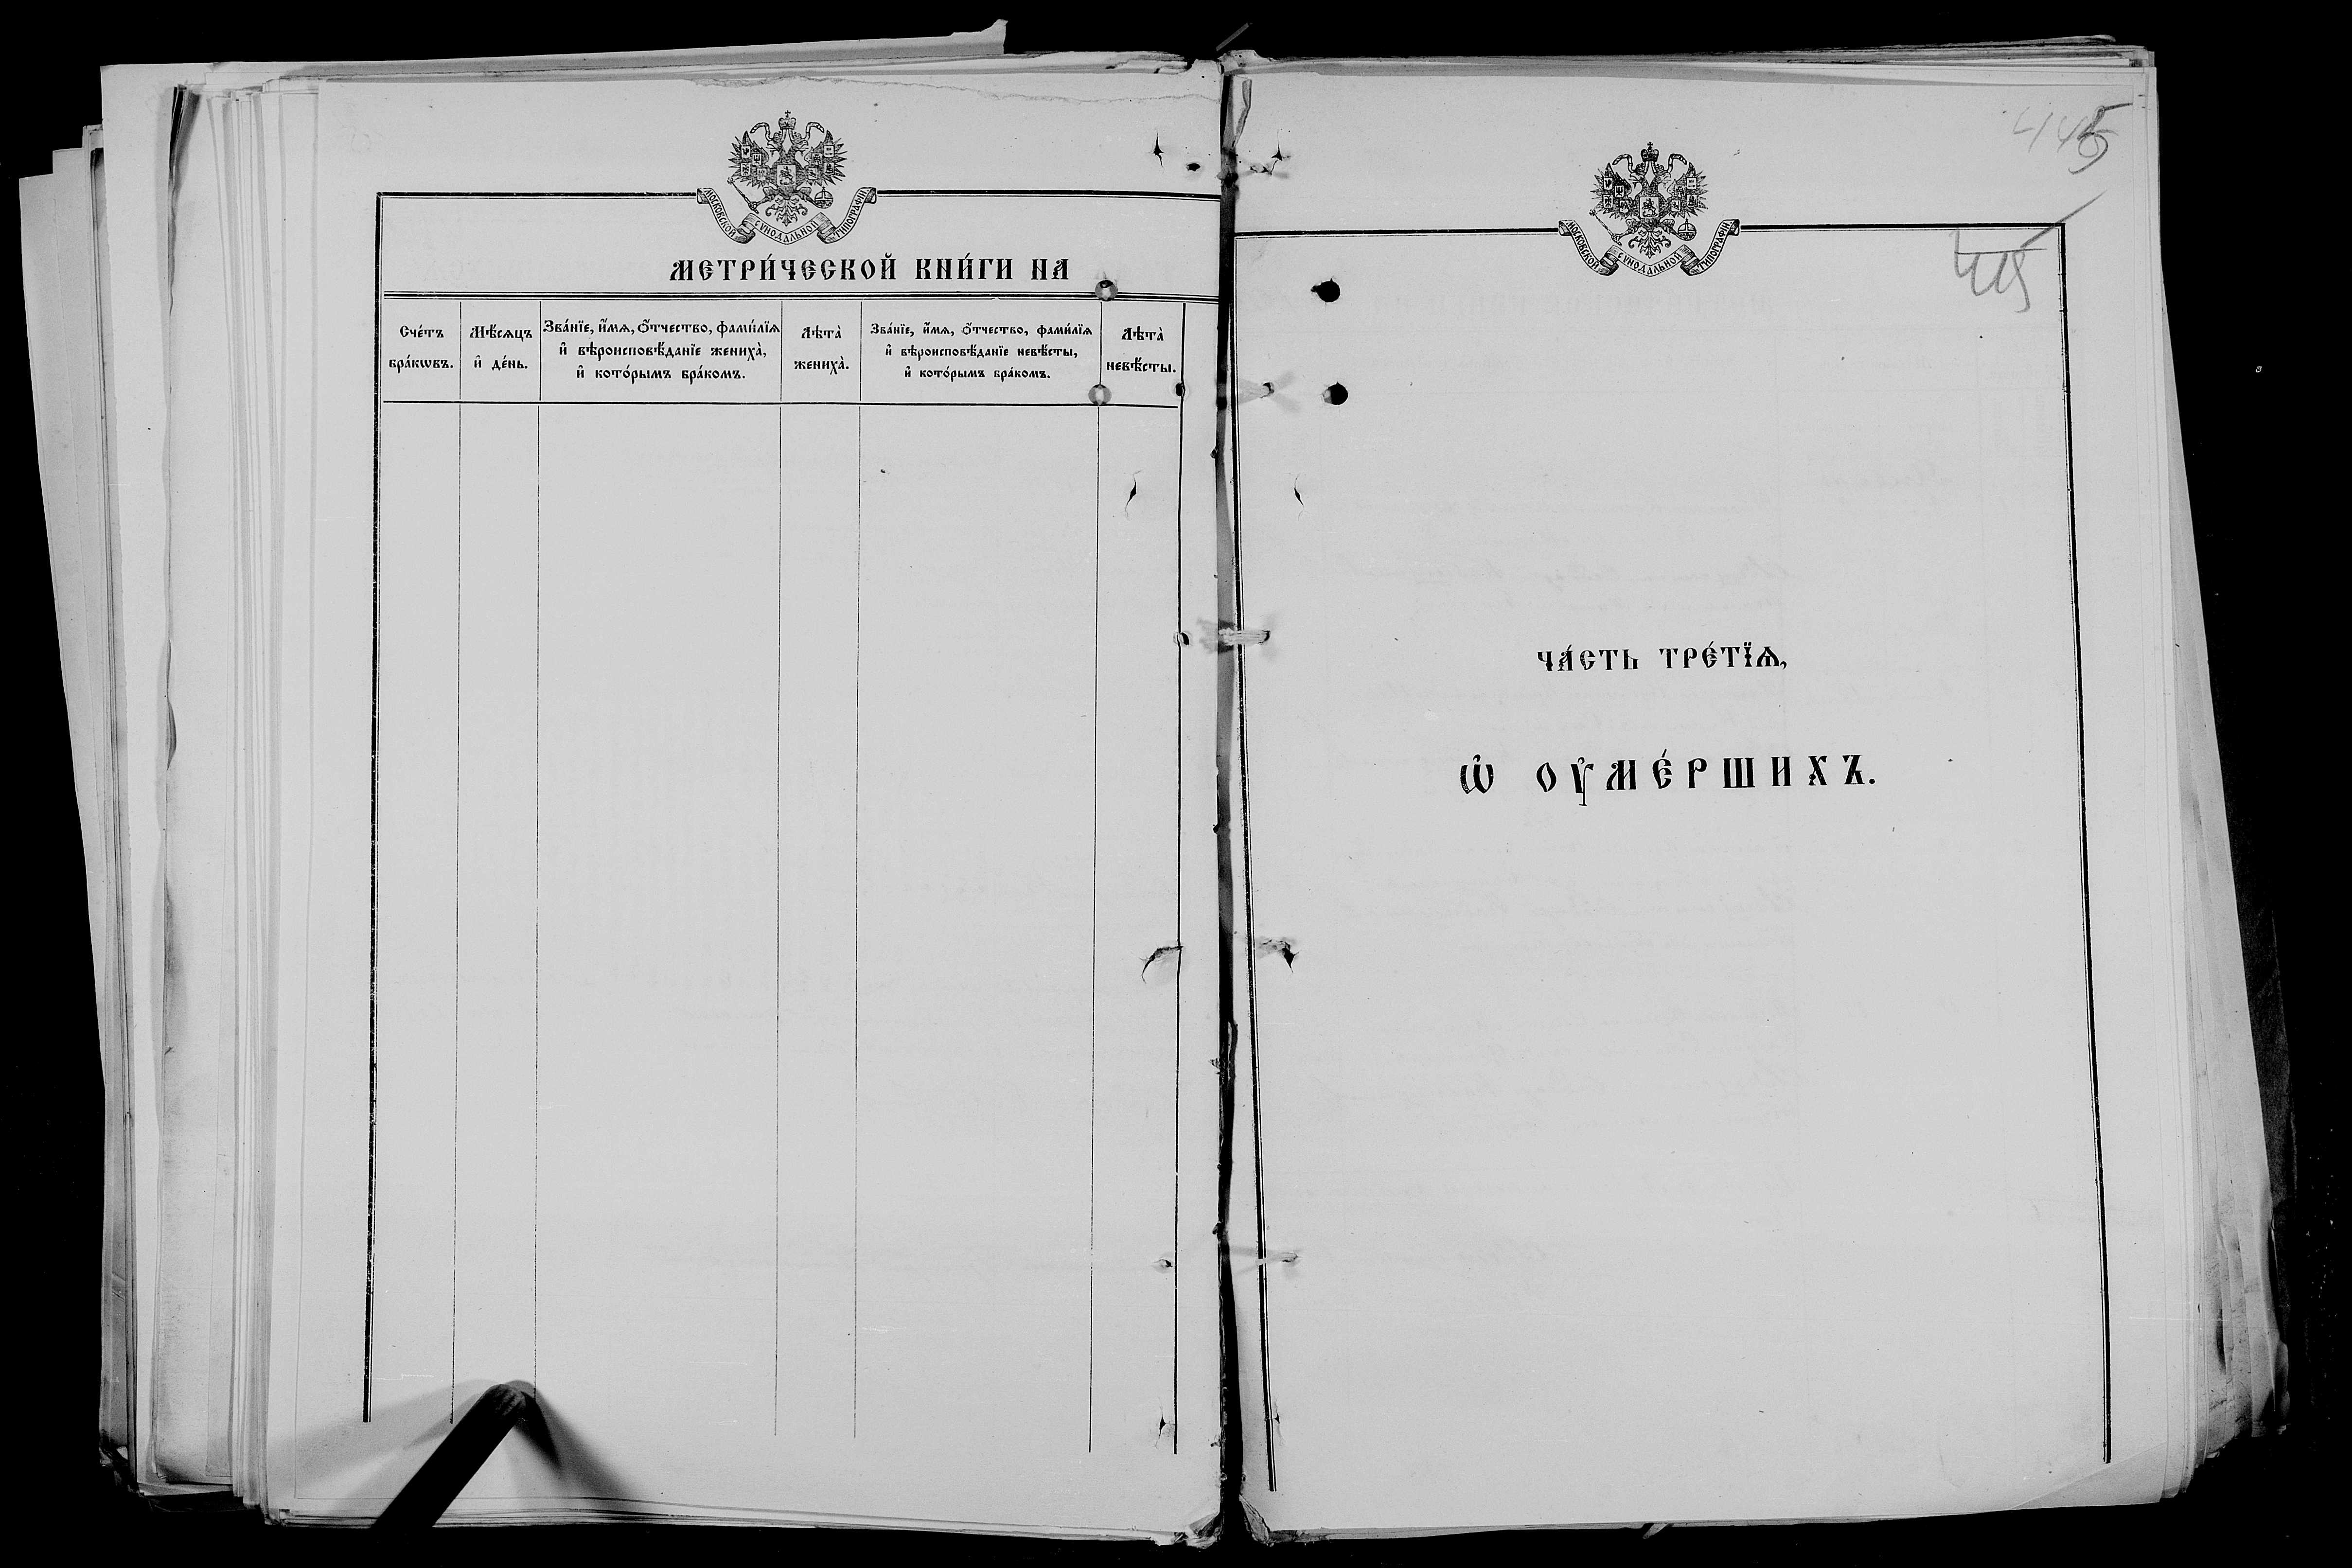 МОСКОВСКОЙ СѴНОДАЛЬНОЙ ТИПОГРАФІИ
МЕТРИ́ЧЕСКОЙ КНИ́ГИ НА
Сче́тъ
бра́кѡвъ.
Мѣ́сѧцъ
и҆ де́нь.
Зва́нїе, и҆́мѧ, ѻ҆́тчество, фамилїѧ
и҆ вѣроисповѣ́данїе жениха̀,
и҆ кото́рымъ бра́комъ.
Лѣта̀
жениха̀.
Зва́нїе, и҆́мѧ, ѻ҆́тчество, фами́лїѧ
и҆ вѣроисповѣ́данїе невѣ́сты,
и҆ кото́рымъ бра́комъ.
Лѣта̀
невѣ́сты.
МОСКОВСКОЙ СѴНОДАЛЬНОЙ ТИПОГРАФІИ
415
ЧА́СТЬ ТРЕ́ТЇѦ,
Ѡ҆ ОУ҆МЕ́РШИХЪ.